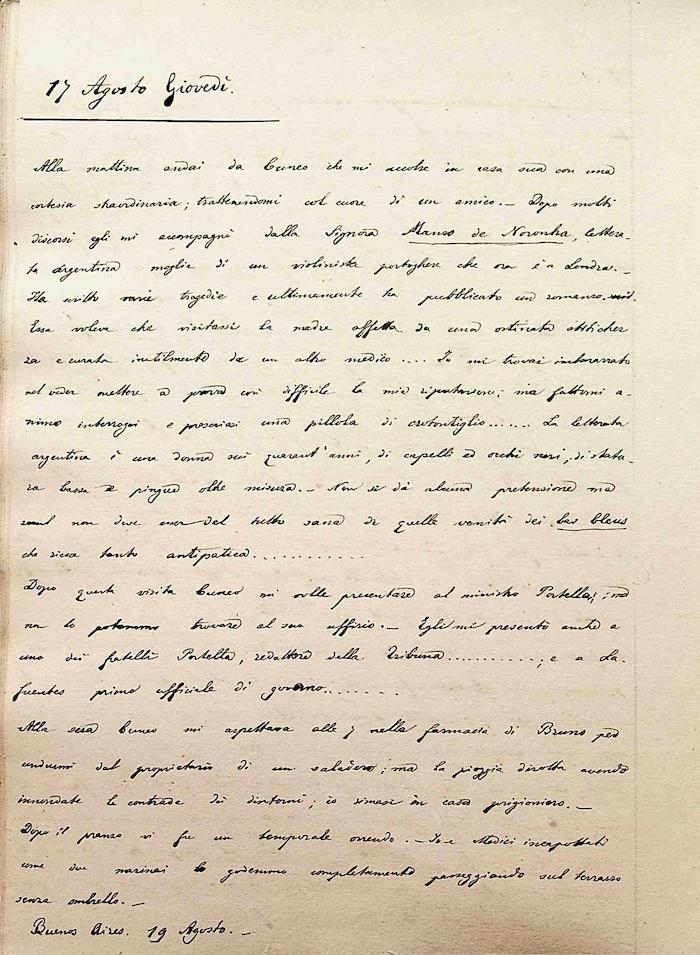 17 Agosto Giovedì.
Alla mattina andai da Cuneo che mi accolse in casa sua con una
cortesia straordinaria; trattenendomi col cuore di un amico. — Dopo molti
discorsi egli mi accompagnò dalla Signora Manso de Noronha, lettera-
ta argentina moglie di un violinista portoghese che ora è a Londra. —
Ha scritto varie tragedie e ultimamente ha pubblicato un romanzo.
Essa voleva che visitassi la madre affetta da una ostinata stitichez
za e curata inutilmente da un altro medico .... Io mi trovai imbarazzato
nel veder mettere a prova così difficile la mia riputazione; ma fattomi a-
nimo interrogai e prescrissi una pillola di crotontiglio ...... La letterata
argentina è una donna sui quarant'anni, di capelli ed occhi neri, di statu-
ra bassa e pingue oltre misura. — Non si dà alcuna pretensione ma
non deve esser del tutto sana di quelle vanità dei bas bleus
che riesce tanto antipatica ............
Dopo questa visita Cuneo mi volle presentare al ministro Portella; ma
non lo potemmo trovare al suo uffizio. — Egli mi presentò anche a
uno dei fratelli Portella, redattore della Tribuna ...........; e a La-
fuentes primo ufficiale di governo ........
Alla sera Cuneo mi aspettava alle 7 nella farmacia di Bruno per
condurmi dal proprietario di un saladero; ma la pioggia dirotta avendo
innondate le contrade dei dintorni; io rimasi in casa prigioniero. —
Dopo il pranzo vi fu un temporale orrendo. — Io e Medici incapottati
come due marinai lo godemmo completamente passeggiando sul terrazzo
senza ombrello. —
Buenos Aires. 19 Agosto. —